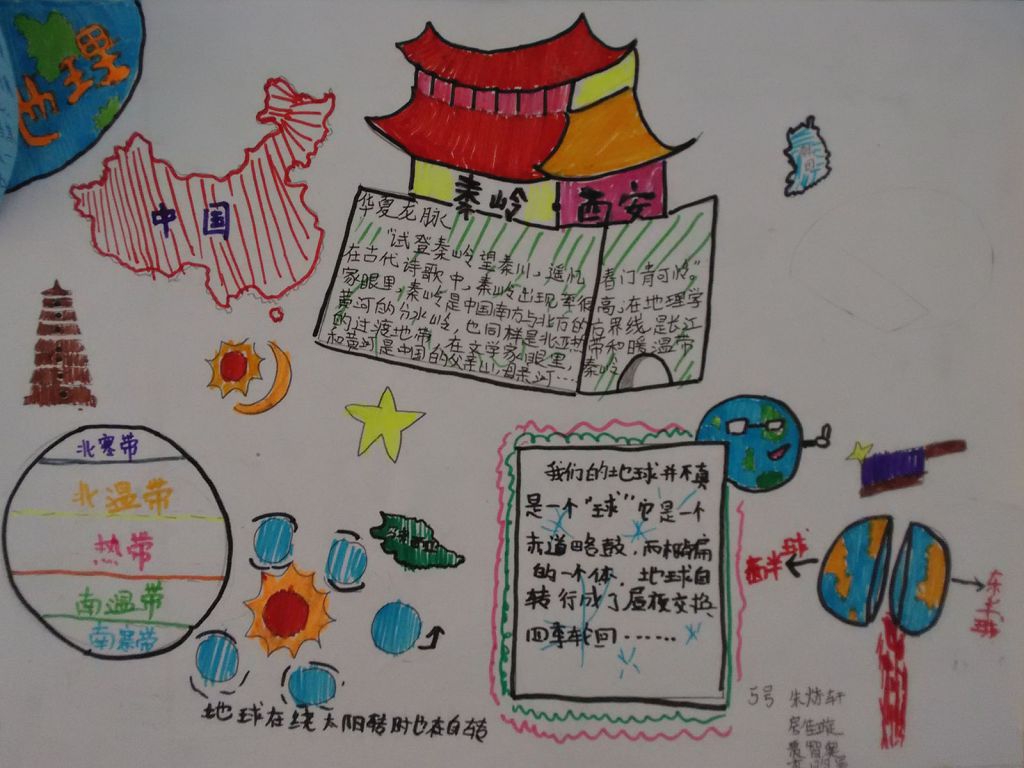 地理
中国
秦岭 西安
华夏龙脉
"试登秦岭望秦川,遥忆 春门青可怜"
在古代诗歌中,秦岭出现率很高;在地理学
家眼里,秦岭是中国南方与北方的 界线,是长江
黄河的分水岭,也同样是北亚热带和暖温带
的过渡地带,在文学家眼里,秦岭
和黄河是中国的父亲山/母亲河…
北寒带
北温带
热带
南温带
南寒带
地球在绕太阳转时也在自转
我们的地球并不真
是一个"球"它是一个
赤道略鼓,两极扁
的一个体,地球自
转行成了昼夜交换
四季轮回……
西半球
东半球
5号